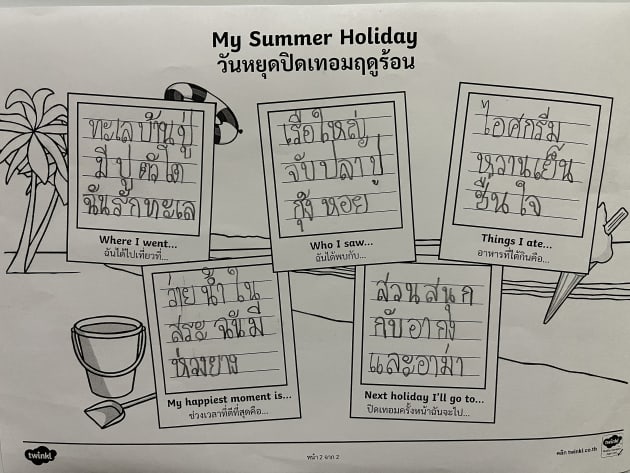 My Summer Holiday
วันหยุดปิดเทอมฤดูร้อน
ทะเลบ้านปู่
มี ปู ตัวโต
ฉันรักทะเล
Where I went...
ฉันได้ไปเที่ยวที่...
เรือใหญ่
จับปลา ปู
กุ้ง หอย
Who I saw...
ฉันได้พบกับ...
ไอศกรีม
หวานเย็น
ชื่นใจ
Things I ate...
อาหารที่ได้กินคือ...
ว่าย น้ำ ใน
สระ ฉันมี
ห่วงยาง
My happiest moment is...
ช่วงเวลาที่ดีที่สุดคือ...
สวนสนุก
กับอากง
และอาม่า
Next holiday I'll go to...
ปิดเทอมครั้งหน้าฉันจะไป...
twinkl
หน้า 2 จาก 2
คลิก twinkl.co.th